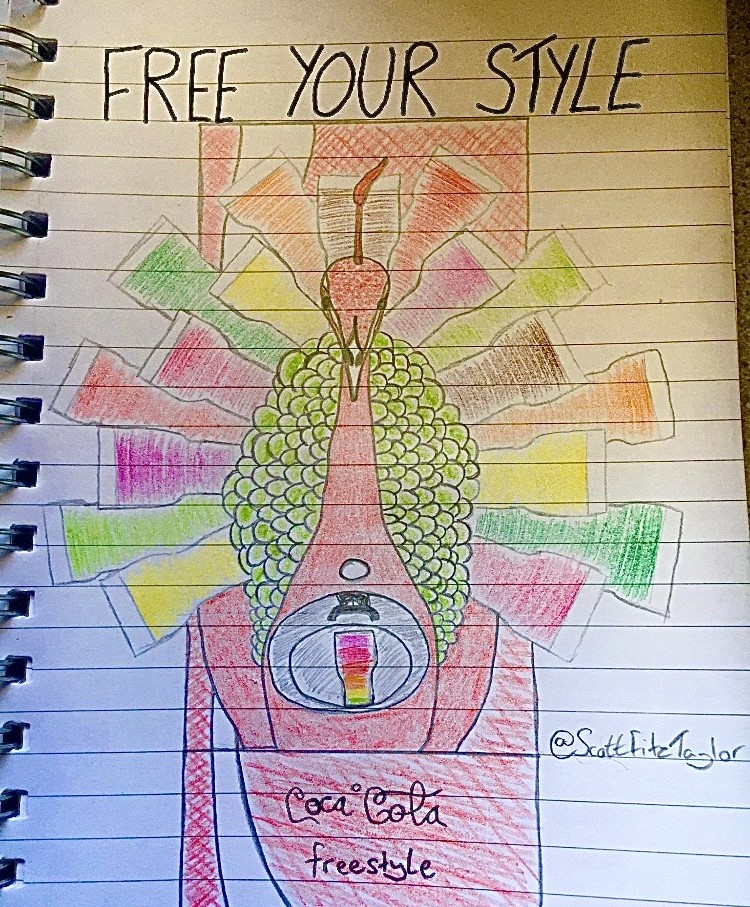 FREE YOUR STYLE
@ScottFitzTaylor
Coca Cola
freestyle